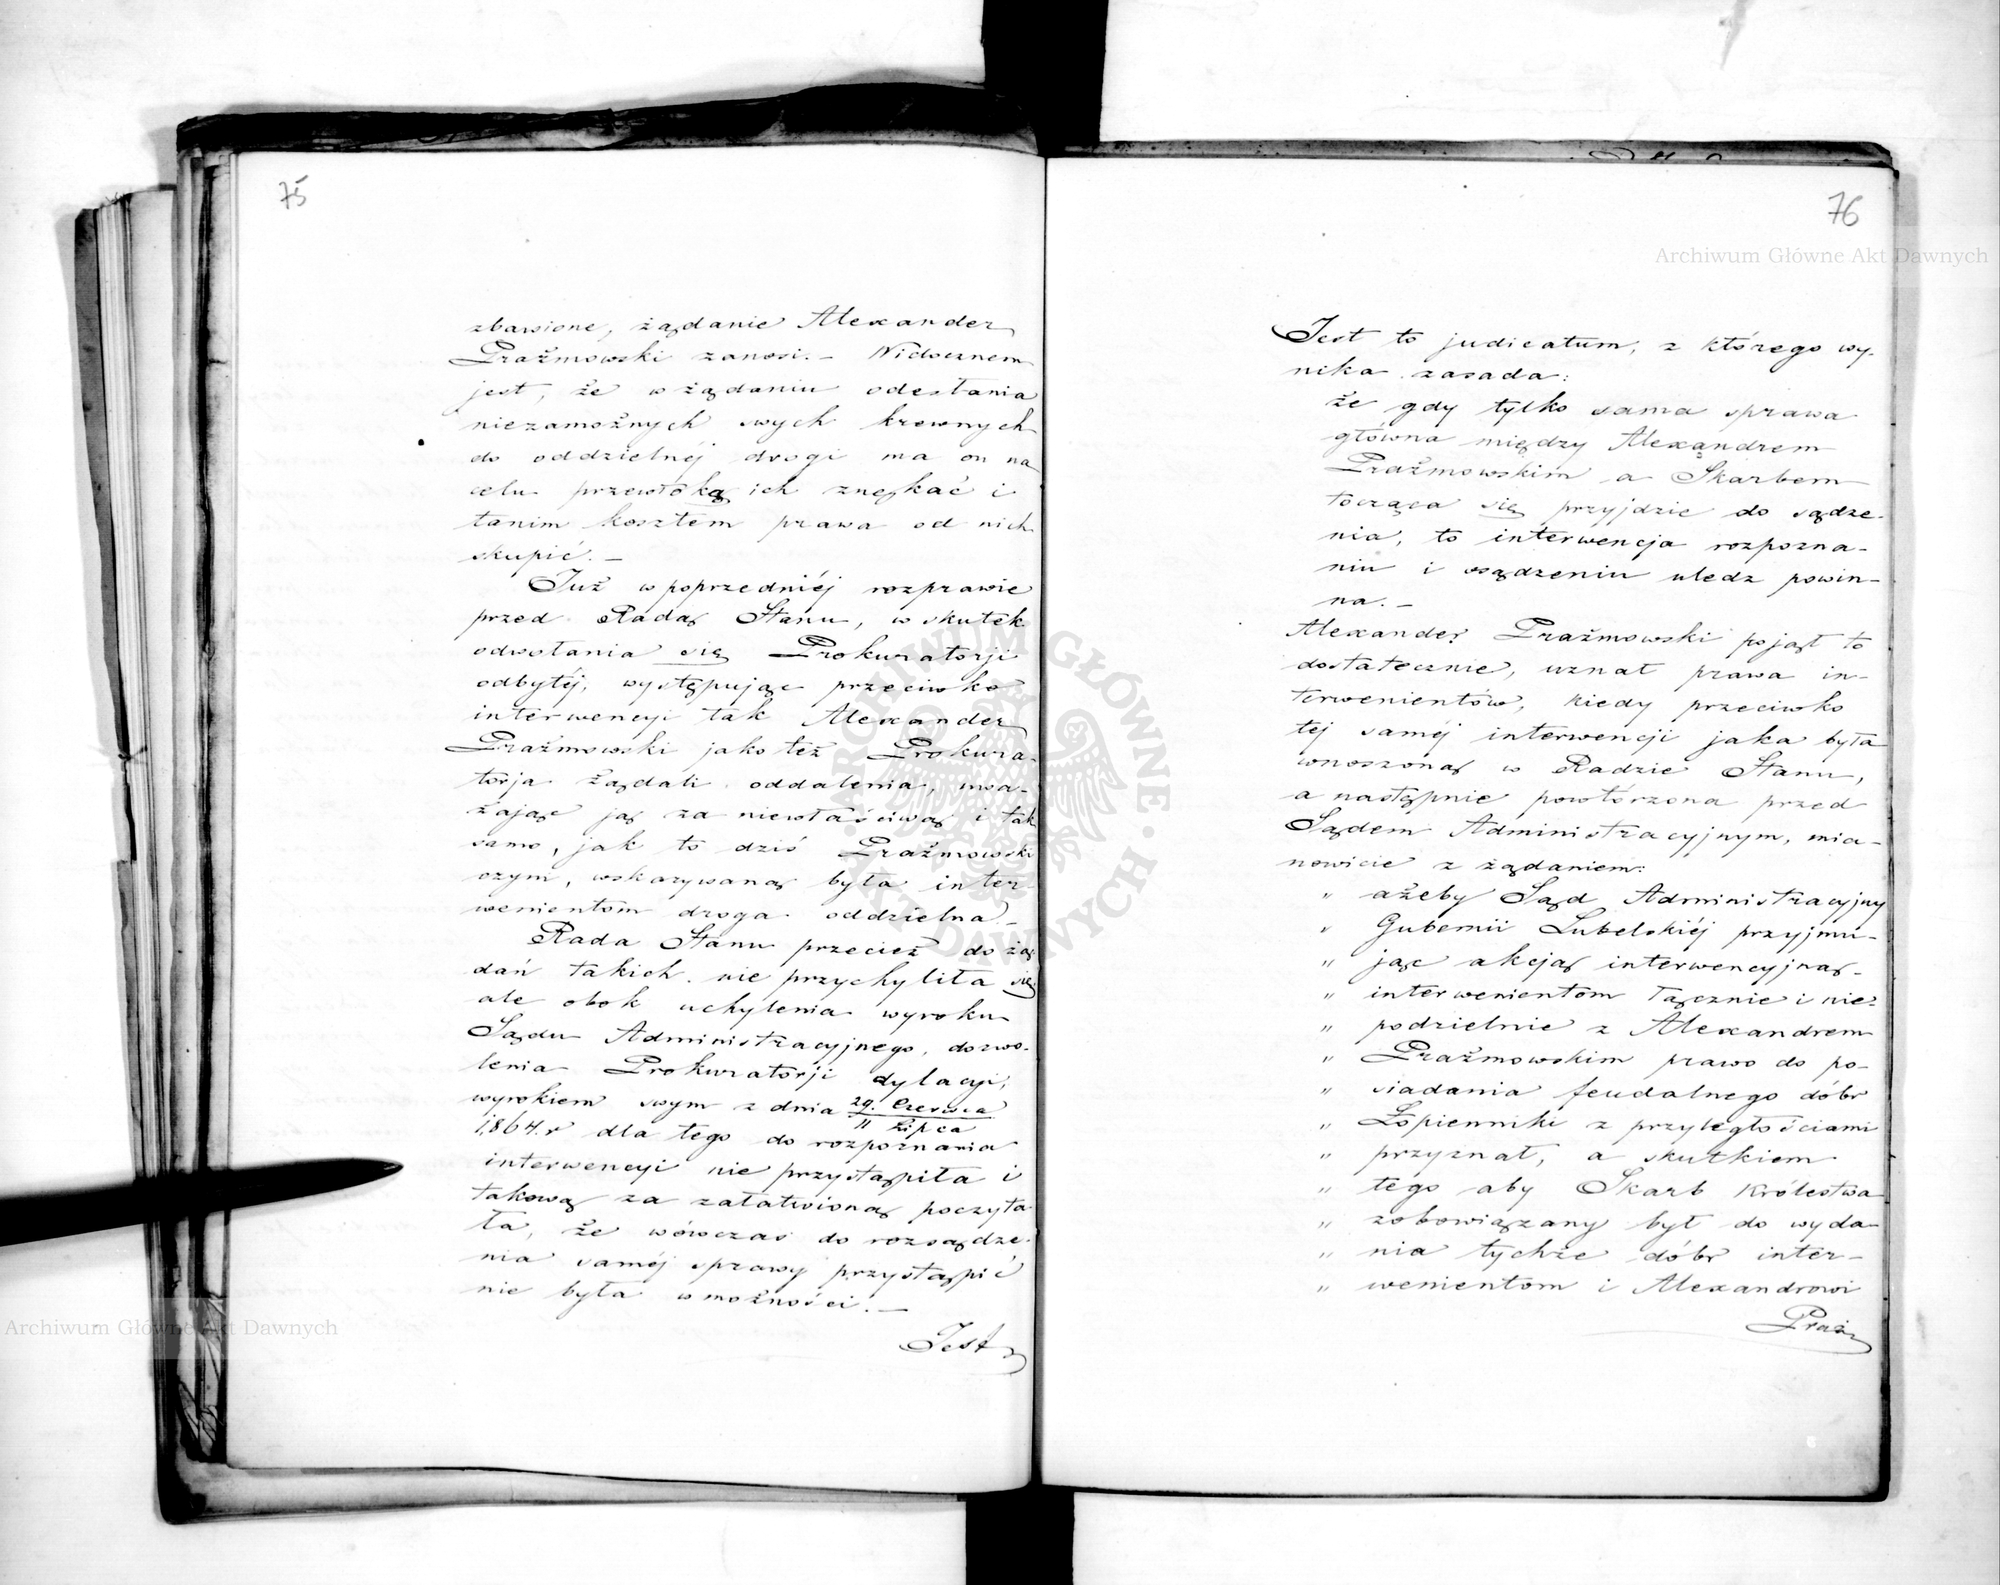 75
zbawione, żądanie Alexander
Prażmowski zanosi. — Widocznem
jest, że w żądaniu odesłania
niezamożnych swych krewnych
do oddzielnéj drogi ma on na
celu przewłoką ich znękać i
tanim kosztem prawa od nich
skupić. —
Już w poprzedniéj rozprawie
przed Radą Stanu, w skutek
odwołania się Prokuratorji
odbytéj, występując przeciwko
interwencyi tak Alexander
Prażmowski jako też Prokura-
torja żądali oddalenia, uwa-
żając ją za niewłaściwą i tak
samo, jak to dziś Prażmowski
czyni, wskazywaną była inter-
wenientom droga oddzielna. —
Rada Stanu przecież do żą-
dań takich nie przychyliła się
ale obok uchylenia wyroku
Sądu Administracyjnego, dozwo-
lenia Prokuratorji dylacyi,
wyrokiem swym z dnia 29. Czerwca
11 Lipca
1864. r dla tego do rozpoznania
interwencyi nie przystąpiła i
takową za załatwioną poczyta-
ła, że wówczas do rozsądze-
nia saméj sprawy przystąpić
nie była w możności. —
Jest
76
Jest to judicatum, z którego wy-
nika zasada:
że gdy tylko sama sprawa
główna między Alexandrem
Prażmowskim a Skarbem
tocząca się przyjdzie do sądze-
nia, to interwencja rozpozna-
niu i osądzeniu uledz powin-
na. —
Alexander Prażmowski pojął to
dostatecznie, uznał prawa in-
terwenientów, kiedy przeciwko
téj saméj interwencji jaka była
wnoszoną w Radzie Stanu,
a następnie powtórzona przed
Sądem Administracyjnym, mia-
nowicie z żądaniem:
" ażeby Sąd Administracyjny
" Gubernii Lubelskiéj przyjmu-
" jąc akcją interwencyjną
" interwenientom łącznie i nie-
" podzielnie z Alexandrem
" Prażmowskim prawo do po-
" siadania feudalnego dóbr
" Łopienniki z przyległościami
" przyznał, a skutkiem
" tego aby Skarb Królestwa
" zobowiązany był do wyda-
" nia tychże dóbr inter-
" wenientom i Alexandrowi
Praż
Archiwum Główne Akt Dawnych
Archiwum Główne Akt Dawnych
ARCHIWUM GŁÓWNE AKT DAWNYCH